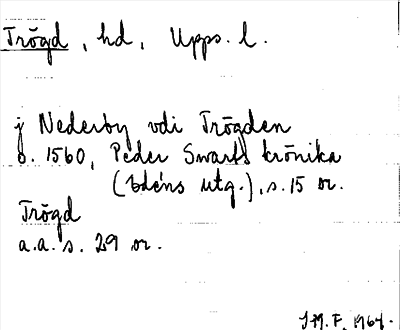 Trögd, hd, Upps. l.
j Nederby vdi Trögden
o. 1560, Peder Swarts krönika
(Edéns utg.), s. 15 or.
Trögd
a.a. s. 29 or.
1964.